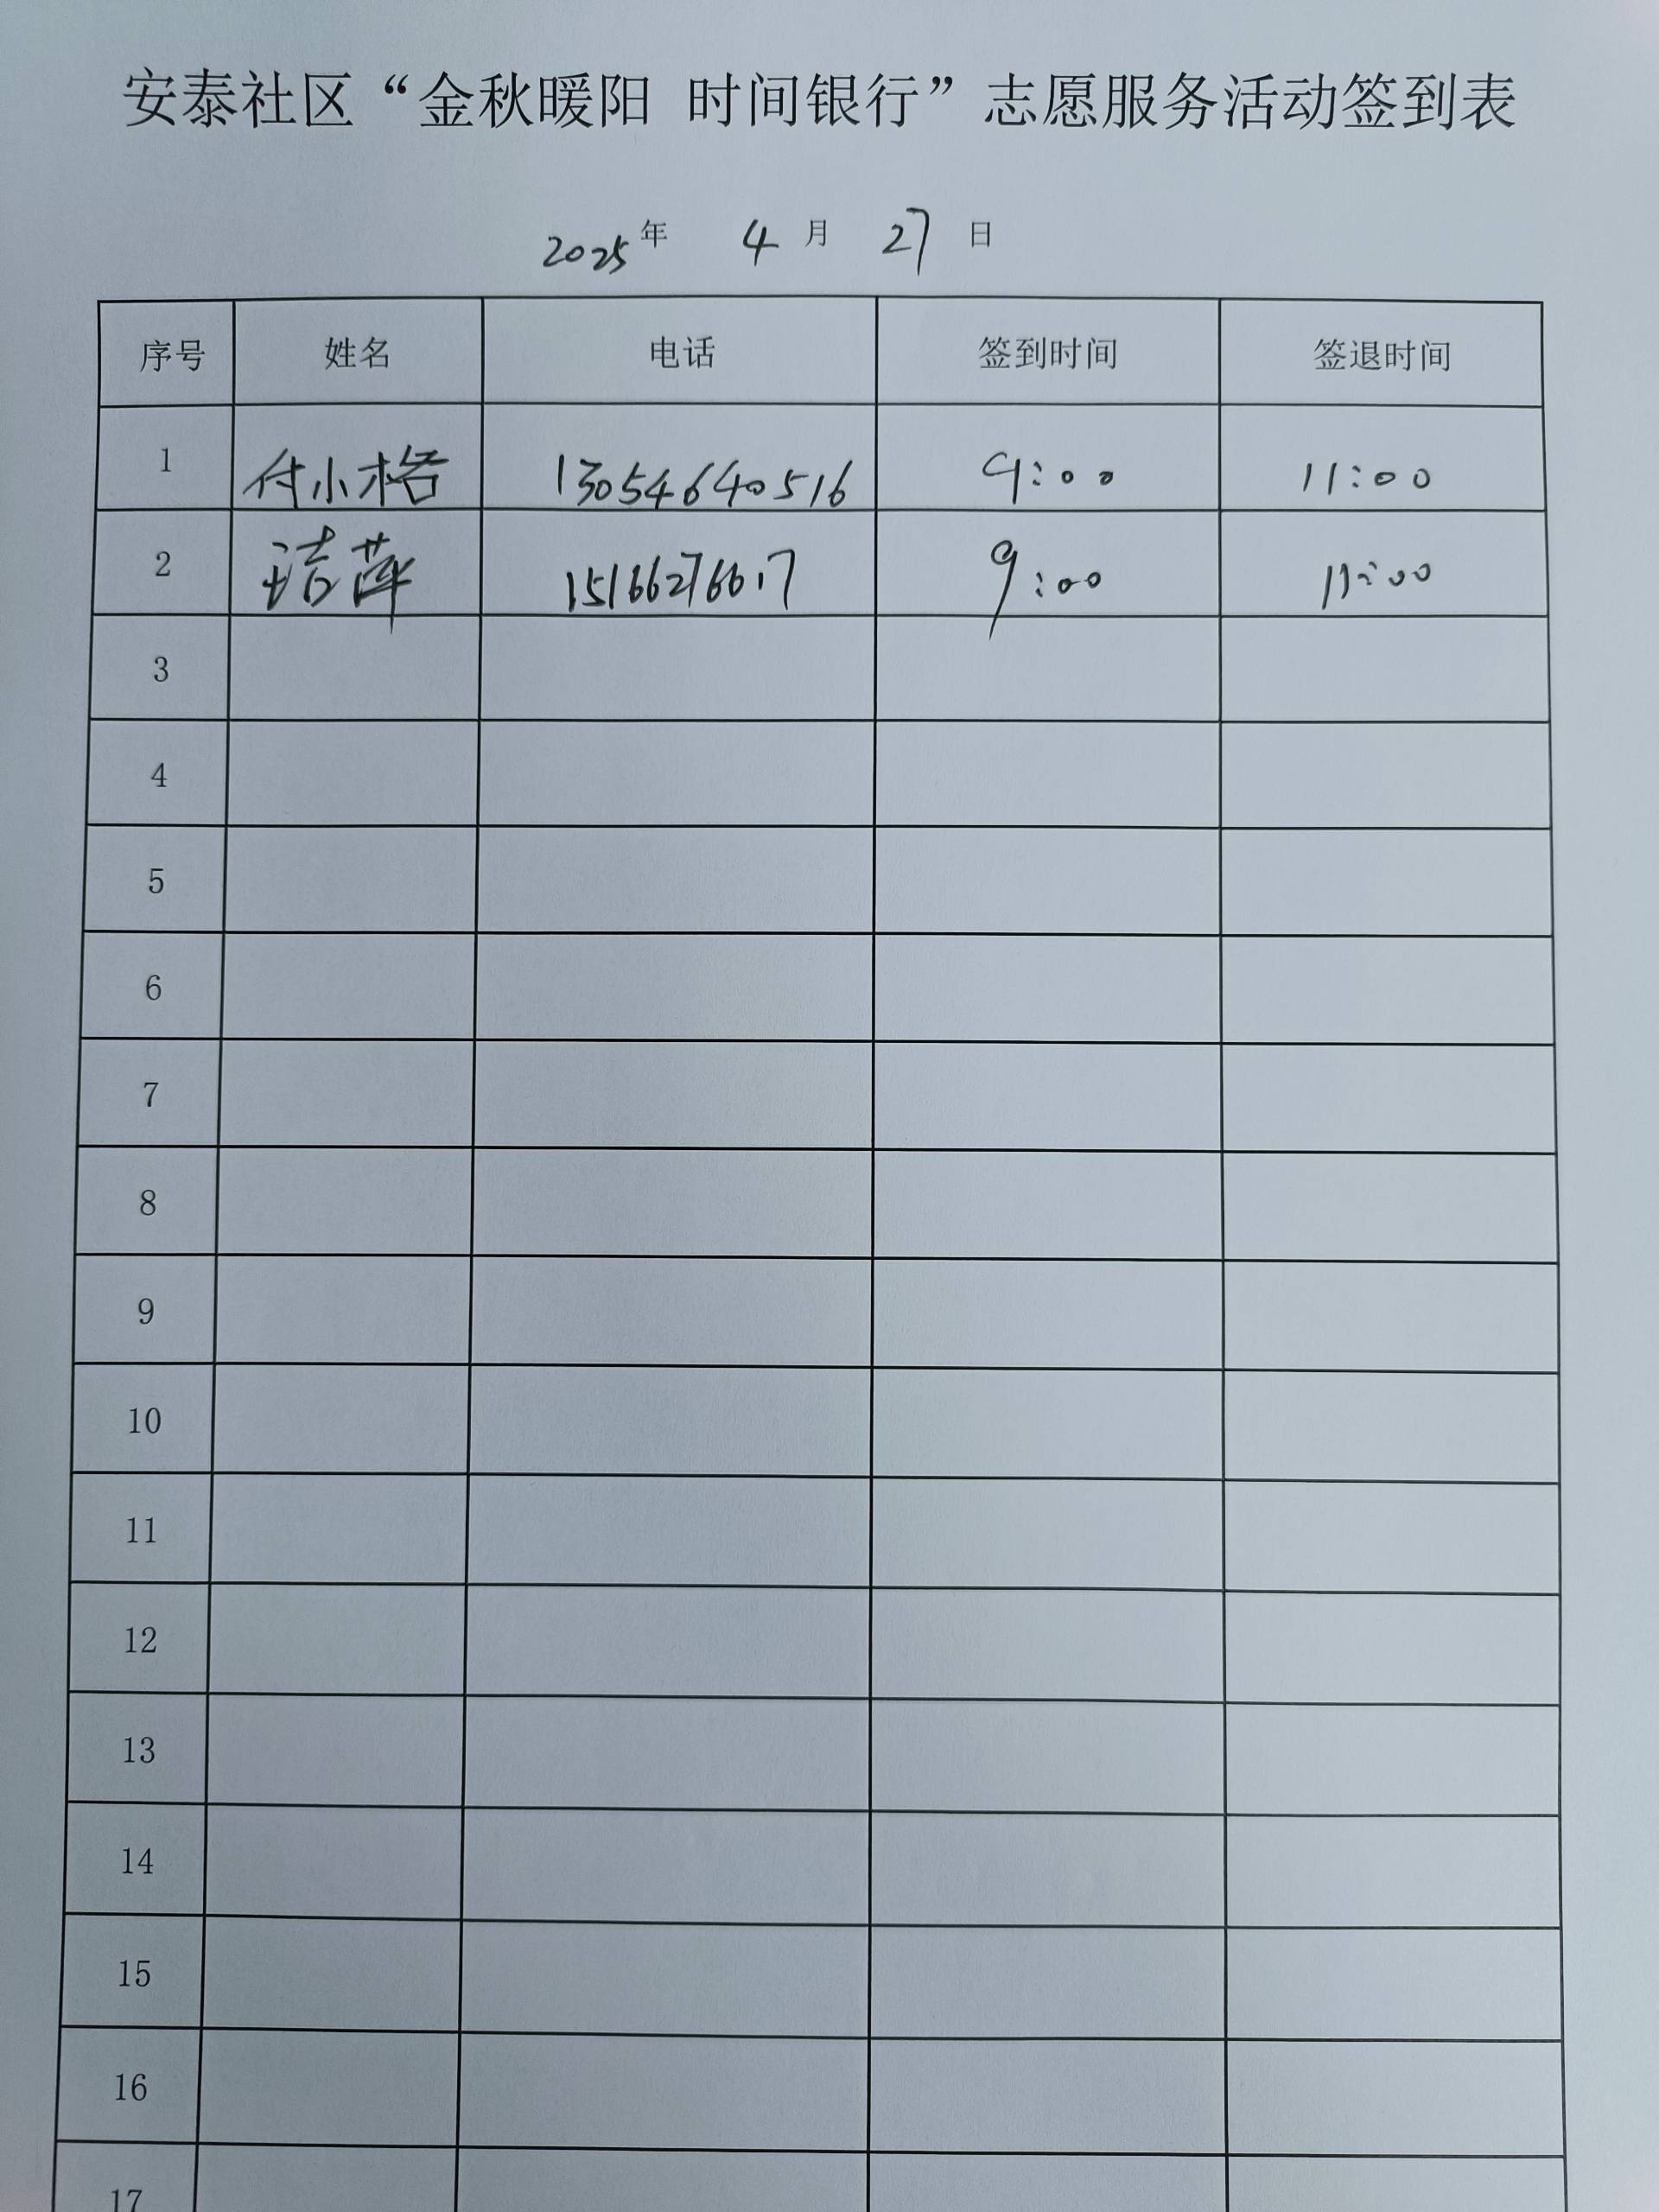 安泰社区“金秋暖阳 时间银行”志愿服务活动签到表
2025年 4月 27日
序号 姓名 电话 签到时间 签退时间
1 付小格 13054640516 9:00 11:00
2 洁萍 15166276617 9:00 11:00
3
4
5
6
7
8
9
10
11
12
13
14
15
16
17